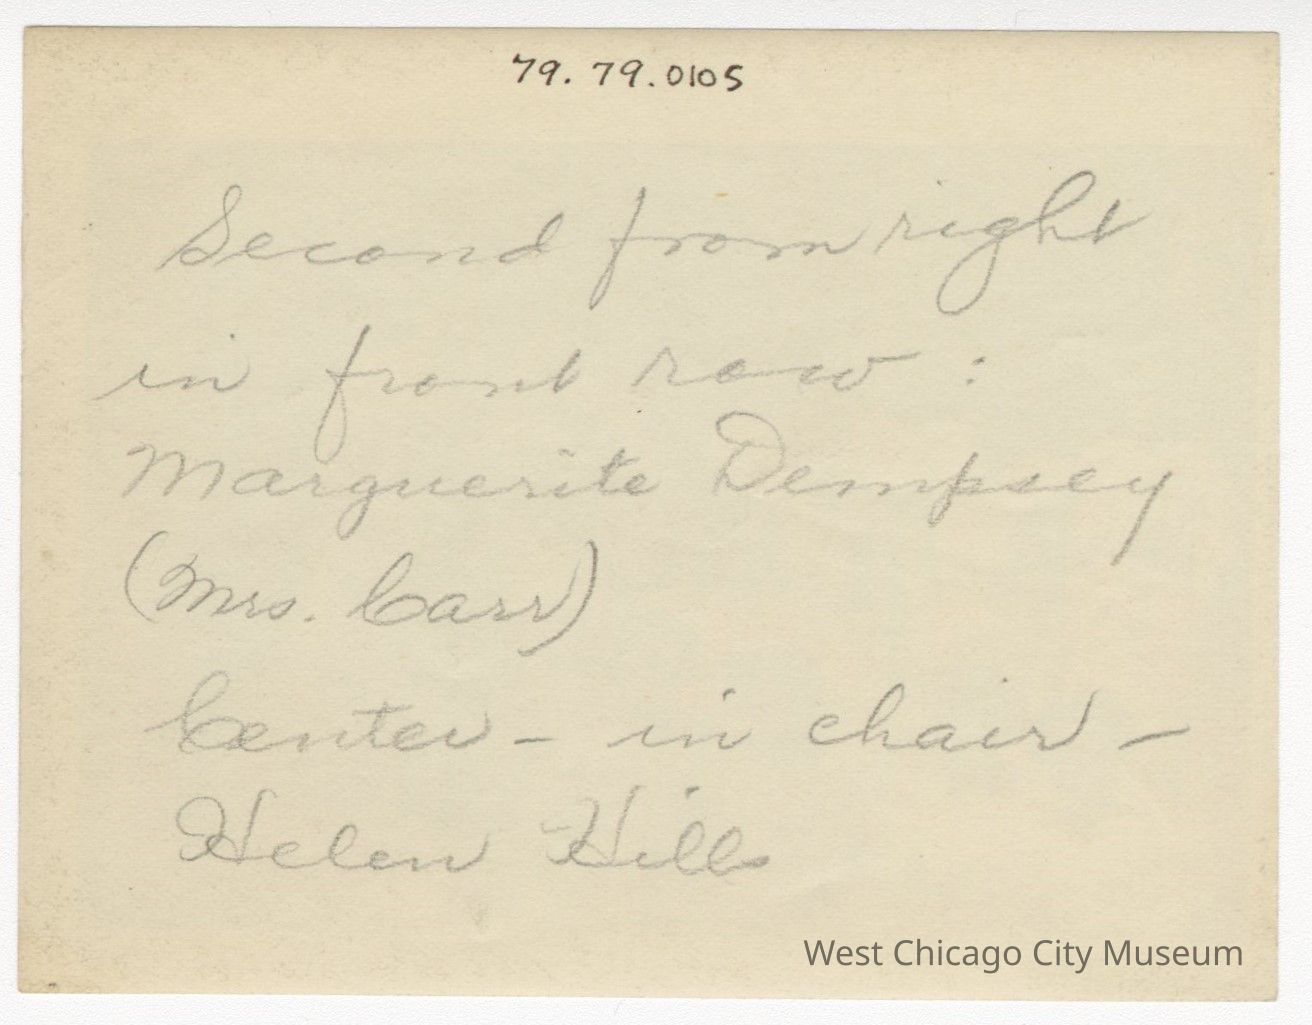 79. 79.0105
Second from right
in front row :
Marguerite Dempsey
(Mrs. Carr)
Center - in chair -
Helen Hills
West Chicago City Museum